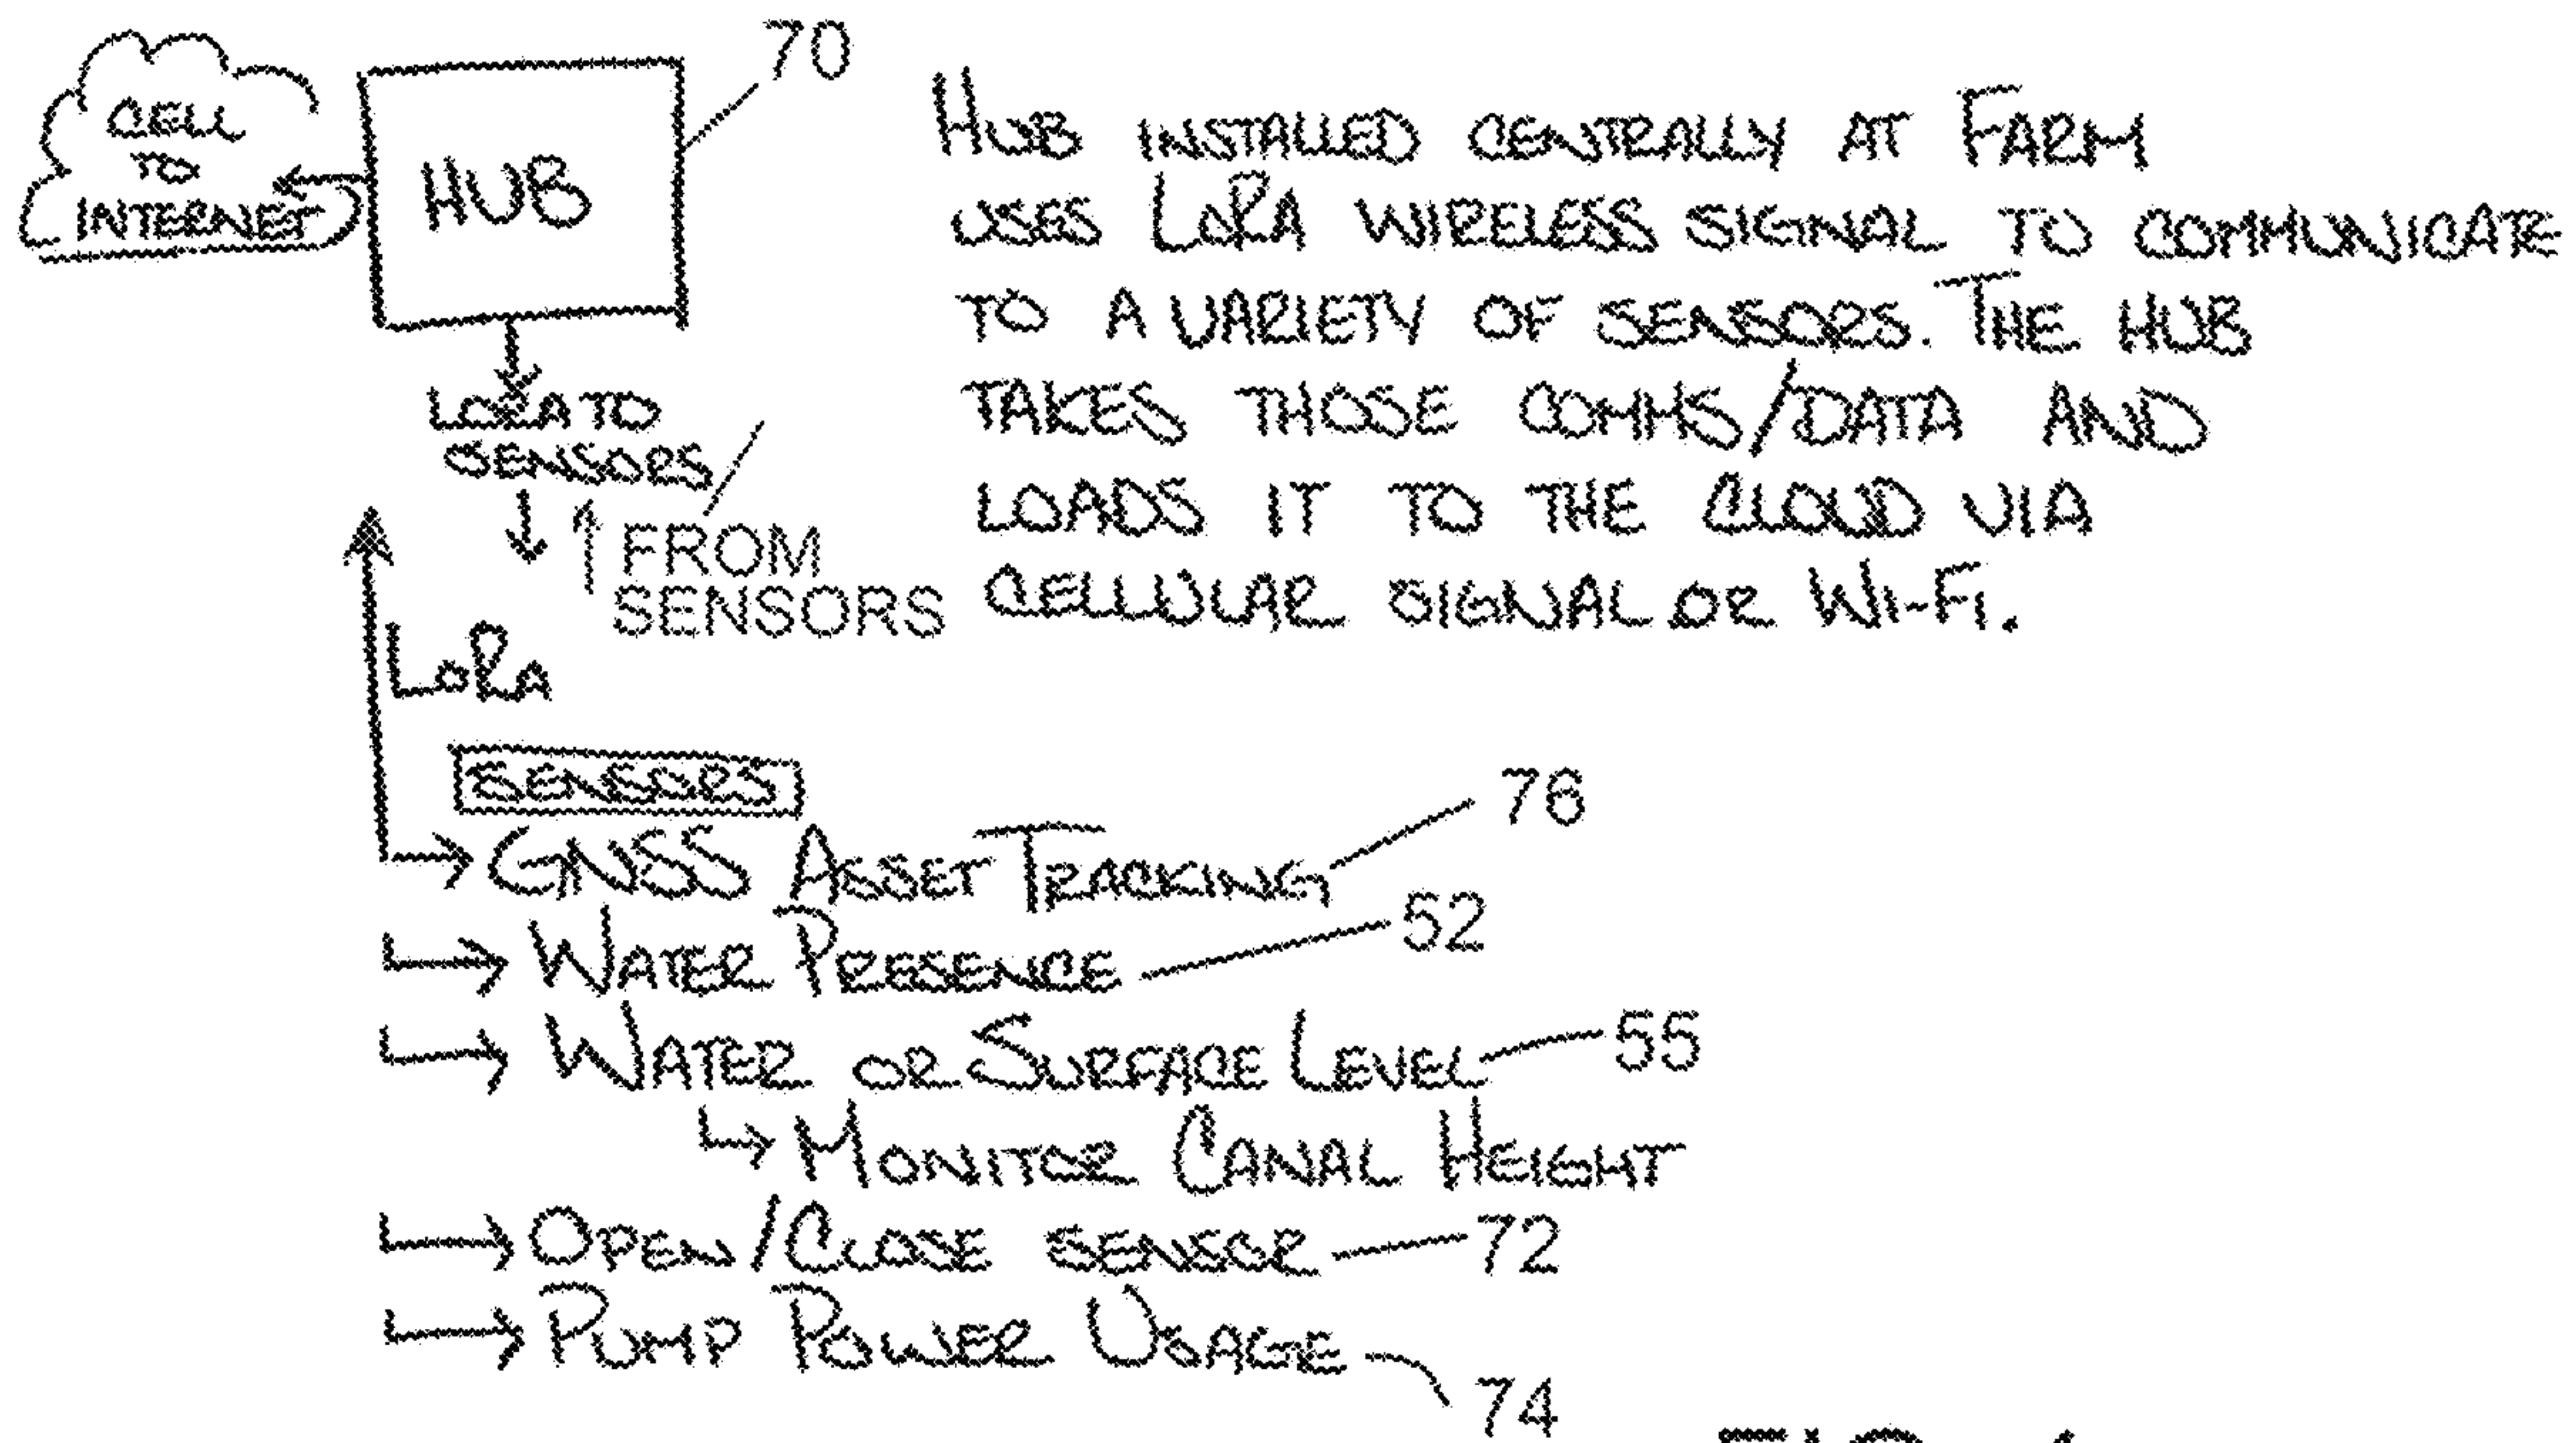 70
CELL
TO
INTERNET
HUB
HUB INSTALLED CENTRALLY AT FARM
USES LORA WIRELESS SIGNAL TO COMMUNICATE
TO A VARIETY OF SENSORS. THE HUB
TAKES THOSE COMMS/DATA AND
LOADS IT TO THE CLOUD VIA
CELLULAR SIGNAL OR WI-FI.
LORA TO
SENSORS /
FROM
SENSORS
LORA
SENSORS
GNSS ASSET TRACKING 76
WATER PRESENCE 52
WATER OR SURFACE LEVEL 55
MONITOR CANAL HEIGHT
OPEN/CLOSE SENSOR 72
PUMP POWER USAGE
74